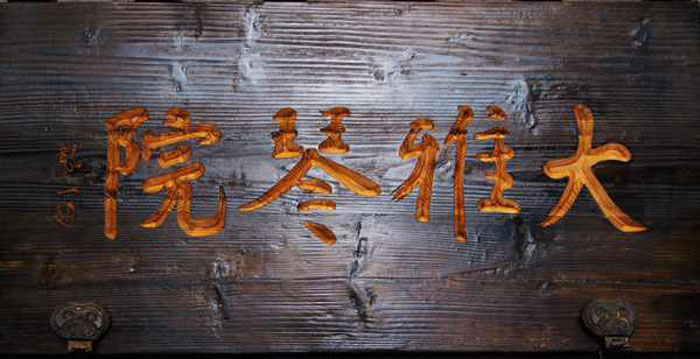 大雅琴院